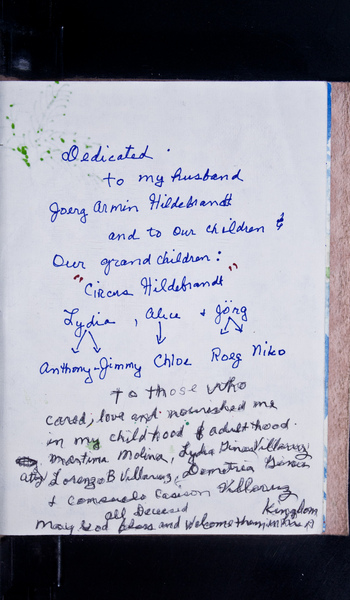 Dedicated
to my husband
Joerg Armin Hildebrandt
and to our children &
Our grandchildren:
"Circus Hildebrandt"
Lydia, Alice & Jörg
Anthony - Jimmy Chloe Roeg Niko
to those who
cared, love and nourished me
in my childhood & adulthood.
Martina Molina, Lydia Villaruz
atty Lorenzo B Villaruz, Demetria
& Consuelo Villaruz
all Deceased
May God bless and Welcome them in Kingdom